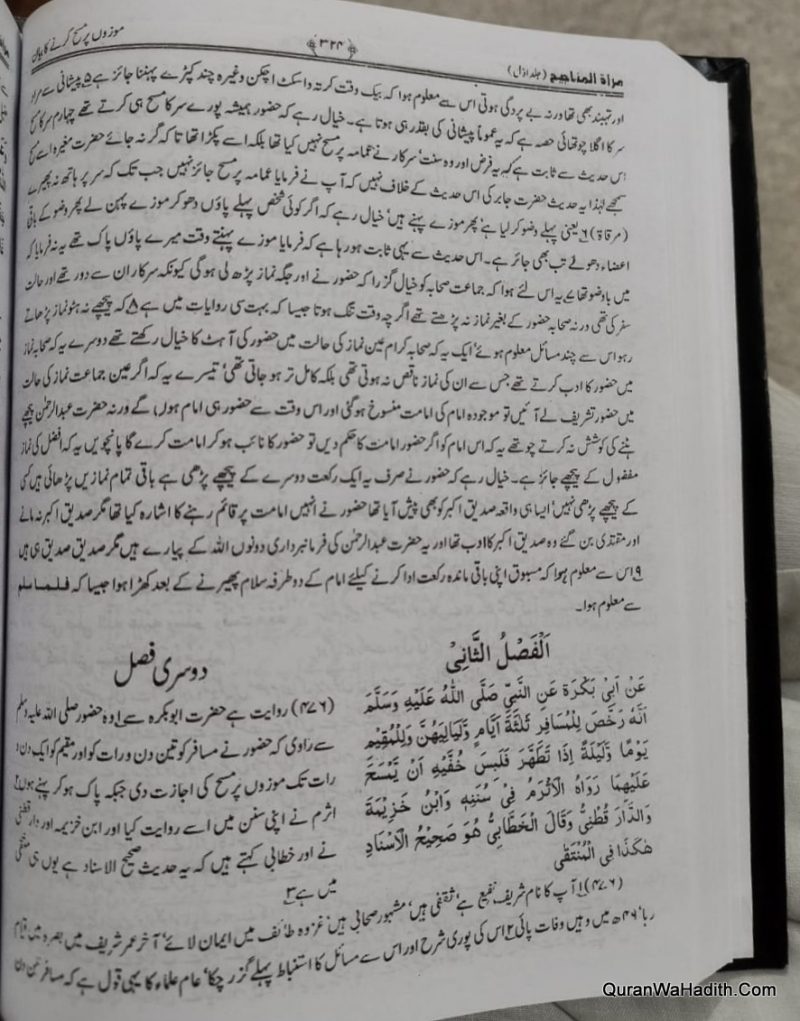 مرآة المناجیح (جلد اول)
﴿۳۲۴﴾
موزوں پر مسح کرنے کا بیان
اور تہبند بھی تھا ورنہ بے پردگی ہوتی اس سے معلوم ہوا کہ بیک وقت کرتہ واسکٹ اچکن وغیرہ چند کپڑے پہننا جائز ہے ۵ پیشانی سے مراد
سر کا اگلا چوتھائی حصہ ہے کہ یہ عموماً پیشانی کی بقدر ہی ہوتا ہے۔ خیال رہے کہ حضور ہمیشہ پورے سر کا مسح ہی کرتے تھے چہارم سر کا مسح
اس حدیث سے ثابت ہے کہ یہ فرض اور وہ سنت‘ سرکار نے عمامہ پر مسح نہیں کیا تھا بلکہ اسے پکڑا تھا تاکہ گر نہ جائے حضرت مغیرہ اسے مسح
سمجھے لہٰذا یہ حدیث حضرت جابر کی اس حدیث کے خلاف نہیں کہ آپ نے فرمایا عمامہ پر مسح جائز نہیں جب تک کہ سر پر ہاتھ نہ پھیرے
(مرقاة) ۶ یعنی پہلے وضو کر لیا ہے پھر موزے پہنے ہیں‘ خیال رہے کہ اگر کوئی شخص پہلے پاؤں دھو کر موزے پہن لے پھر وضو کے باقی
اعضاء دھولے تب بھی جائز ہے۔ اس حدیث سے یہی ثابت ہو رہا ہے کہ فرمایا موزے پہنتے وقت میرے پاؤں پاک تھے یہ نہ فرمایا کہ
میں باوضو تھا ۷ یہ اس لئے ہوا کہ جماعت صحابہ کو خیال گزرا کہ حضور نے اور جگہ نماز پڑھ لی ہوگی کیونکہ سرکار ان سے دور تھے اور حالت
سفر کی تھی ورنہ صحابہ حضور کے بغیر نماز نہ پڑھتے تھے اگرچہ وقت تنگ ہوتا جیسا کہ بہت سی روایات میں ہے ۸ کہ پیچھے نہ ہٹو نماز پڑھاتے
رہو اس سے چند مسائل معلوم ہوئے‘ ایک یہ کہ صحابہ کرام عین نماز کی حالت میں حضور کی آہٹ کا خیال رکھتے تھے دوسرے یہ کہ صحابہ نماز
میں حضور کا ادب کرتے تھے جس سے ان کی نماز ناقص نہ ہوتی تھی بلکہ کامل تر ہو جاتی تھی‘ تیسرے یہ کہ اگر عین جماعت نماز کی حالت
میں حضور تشریف لے آئیں تو موجودہ امام کی امامت منسوخ ہوگئی اور اس وقت سے حضور ہی امام ہوں گے ورنہ حضرت عبدالرحمٰن پیچھے
ہٹنے کی کوشش نہ کرتے چوتھے یہ کہ اس امام کو اگر حضور امامت کا حکم دیں تو حضور کا نائب ہو کر امامت کرے گا پانچویں یہ کہ افضل کی نماز
مفضول کے پیچھے جائز ہے۔ خیال رہے کہ حضور نے صرف یہ ایک رکعت دوسرے کے پیچھے پڑھی ہے باقی تمام نمازیں پڑھائی ہیں کسی
کے پیچھے پڑھی نہیں‘ ایسا ہی واقعہ صدیق اکبر کو بھی پیش آیا تھا حضور نے انہیں امامت پر قائم رہنے کا اشارہ کیا تھا مگر صدیق اکبر نہ مانے
اور مقتدی بن گئے وہ صدیق اکبر کا ادب تھا اور یہ حضرت عبدالرحمٰن کی فرمانبرداری دونوں اللہ کے پیارے ہیں مگر صدیق صدیق ہی ہیں
۹ اس سے معلوم ہوا کہ مسبوق اپنی باقی ماندہ رکعت ادا کرنے کیلئے امام کے دو طرفہ سلام پھیرنے کے بعد کھڑا ہوا جیسا کہ فلما سلم
سے معلوم ہوا۔
اَلْفَصْلُ الثَّانِی
عَنْ اَبِیْ بَکْرَةَ عَنِ النَّبِیِّ صَلَّی اللّٰهُ عَلَیْهِ وَسَلَّمَ
اَنَّهٗ رَخَّصَ لِلْمُسَافِرِ ثَلٰثَةَ اَیَّامٍ وَّلَیَالِیَهُنَّ وَلِلْمُقِیْمِ
یَوْمًا وَّلَیْلَةً اِذَا تَطَهَّرَ فَلَبِسَ خُفَّیْهِ اَنْ یَّمْسَحَ
عَلَیْهِمَا رَوَاهُ الْاَثْرَمُ فِیْ سُنَنِهٖ وَابْنُ خُزَیْمَةَ
وَالدَّارَ قُطْنِیُّ وَقَالَ الْخَطَّابِیُّ هُوَ صَحِیْحُ الْاَسْنَادِ
هٰکَذَا فِی الْمُنْتَقٰی
دوسری فصل
(۴۷۶) روایت ہے حضرت ابوبکرہ سے ۱ وہ حضور صلی اللہ علیہ وسلم
سے راوی کہ حضور نے مسافر کو تین دن و رات کو اور مقیم کو ایک دن و
رات تک موزوں پر مسح کی اجازت دی جبکہ پاک ہو کر پہنے ہوں ۲
اثرم نے اپنی سنن میں اسے روایت کیا اور ابن خزیمہ اور دارقطنی
نے اور خطابی کہتے ہیں کہ یہ حدیث صحیح الاسناد ہے یوں ہی منتقی
میں ہے ۳
(۴۷۶) ۱ آپ کا نام شریف نفیع ہے‘ ثقفی ہیں‘ مشہور صحابی ہیں‘ غزوہ طائف میں ایمان لائے‘ آخر عمر شریف میں بصرہ میں قیام
رہا‘ ۴۹ھ میں وہیں وفات پائی ۲ اس کی پوری شرح اور اس سے مسائل کا استنباط پہلے گزر چکا‘ عام علماء کا یہی قول ہے کہ مسافر تین دن
QuranWaHadith.Com